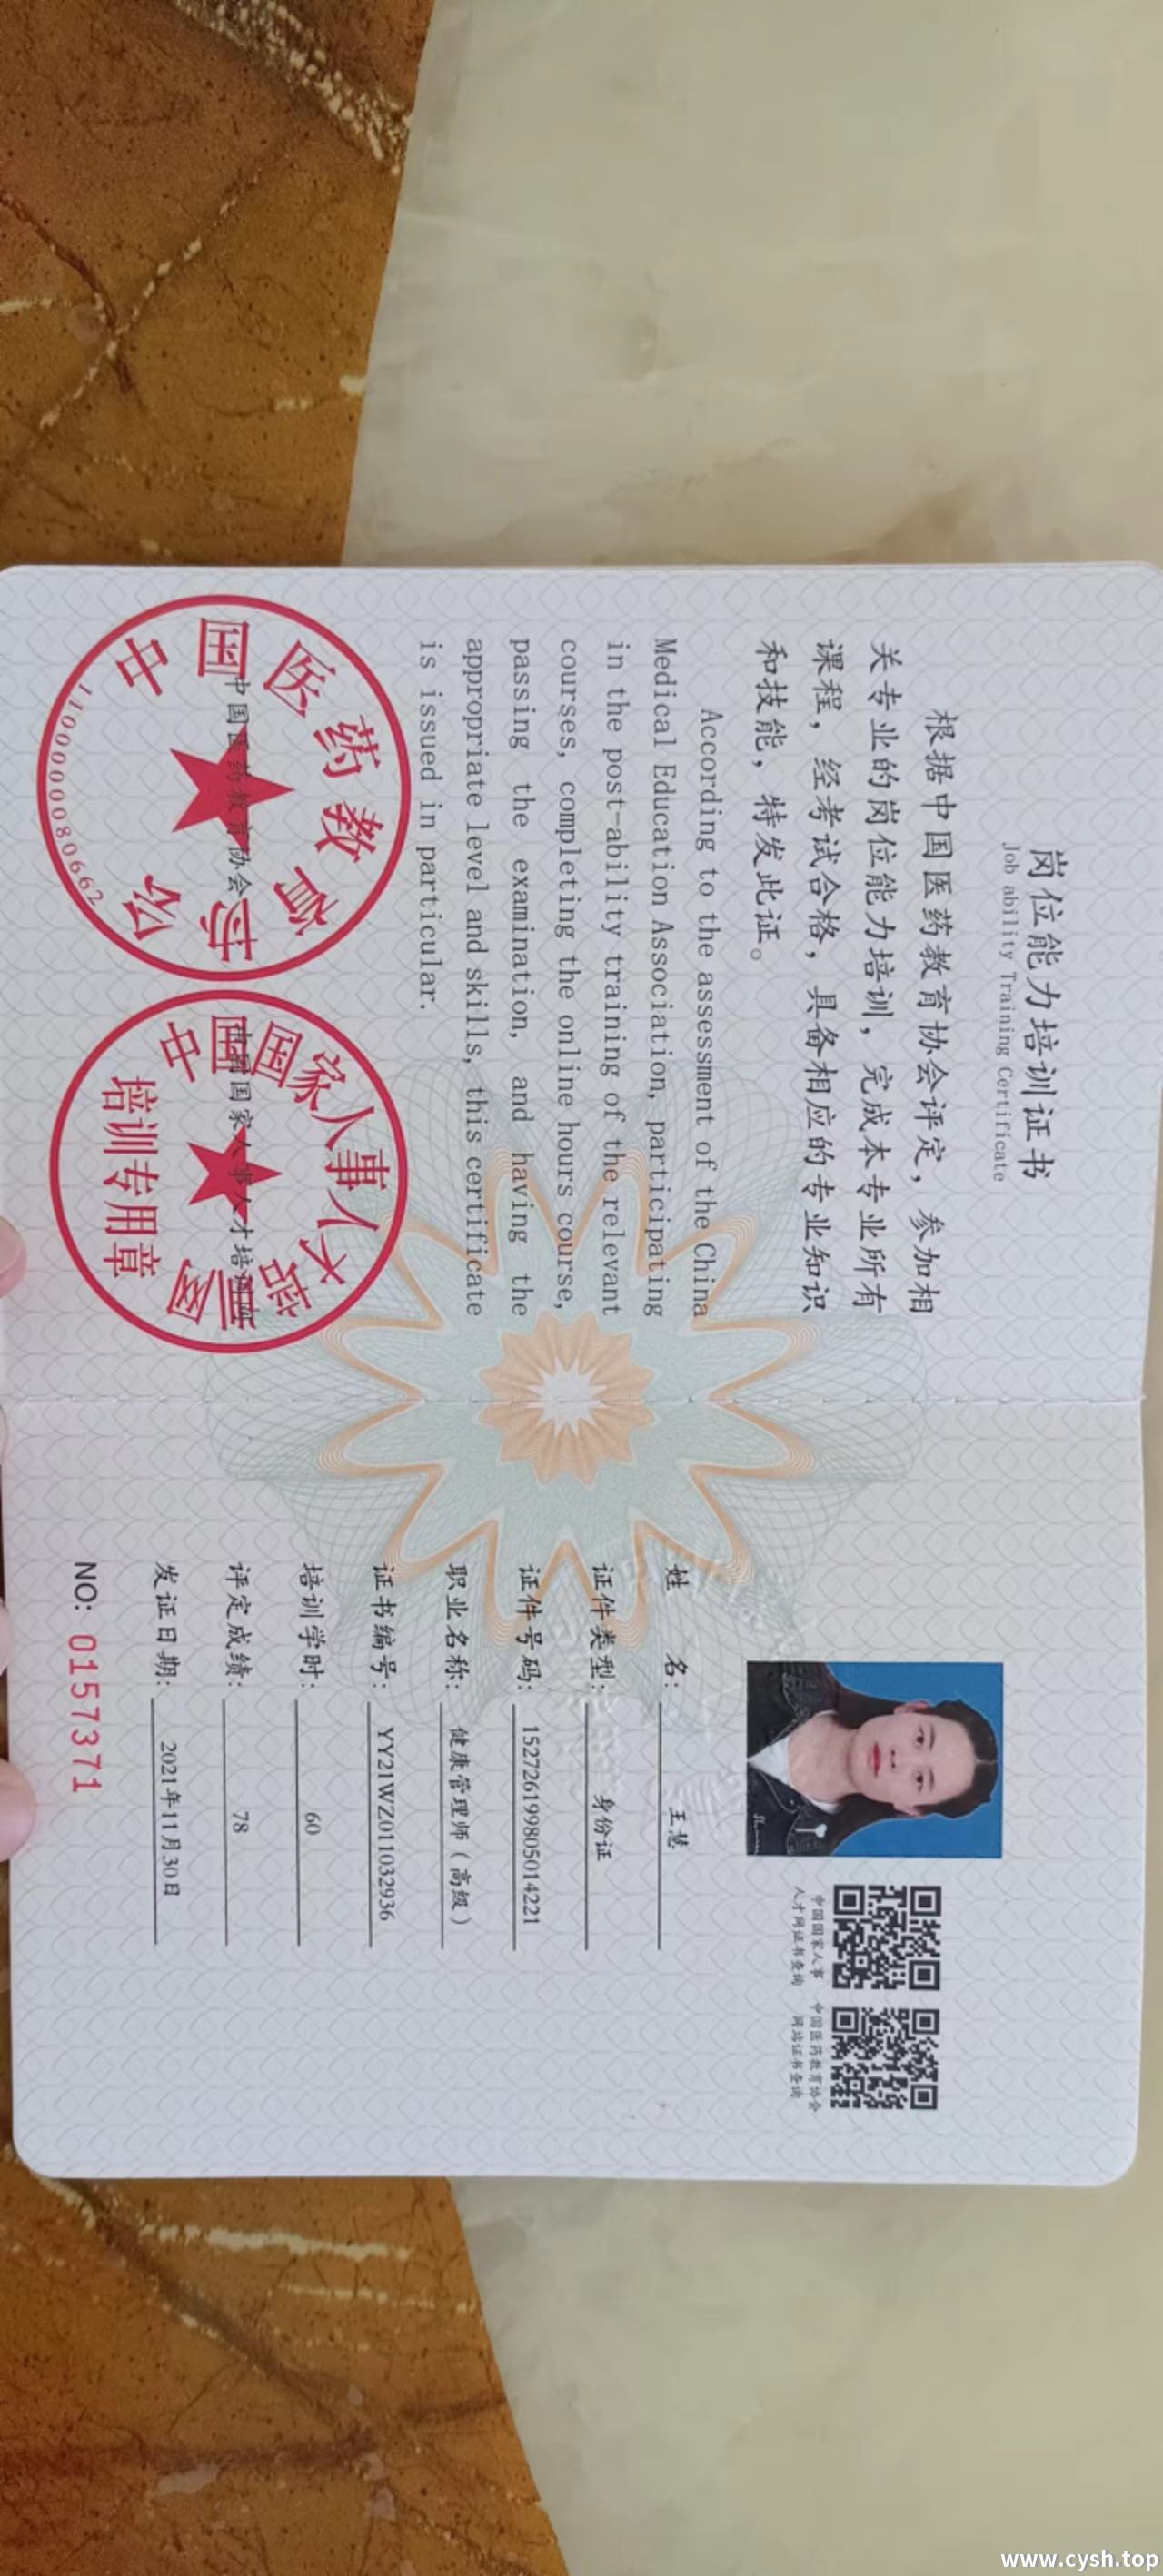 岗位能力培训证书
Job ability Training Certificate
根据中国医药教育协会评定，参加相
关专业的岗位能力培训，完成本专业所有
课程，经考试合格，具备相应的专业知识
和技能，特发此证。
According to the assessment of the China
Medical Education Association, participating
in the post-ability training of the relevant
courses, completing the online hours course,
passing the examination, and having the
appropriate level and skills, this certificate
is issued in particular.
中国医药教育协会
中国医药教育协会
1100000080662
中国国家人事人才培训网
中国国家人事人才培训网
培训专用章
中国国家人事
人才网证书查询
中国医药教育协会
网站证书查询
姓名： 王慧
证件类型： 身份证
证件号码： 152726199805014221
职业名称： 健康管理师（高级）
证书编号： YY21WZ011032936
培训学时： 60
评定成绩： 78
发证日期： 2021年11月30日
NO: 0157371
www.cysh.top